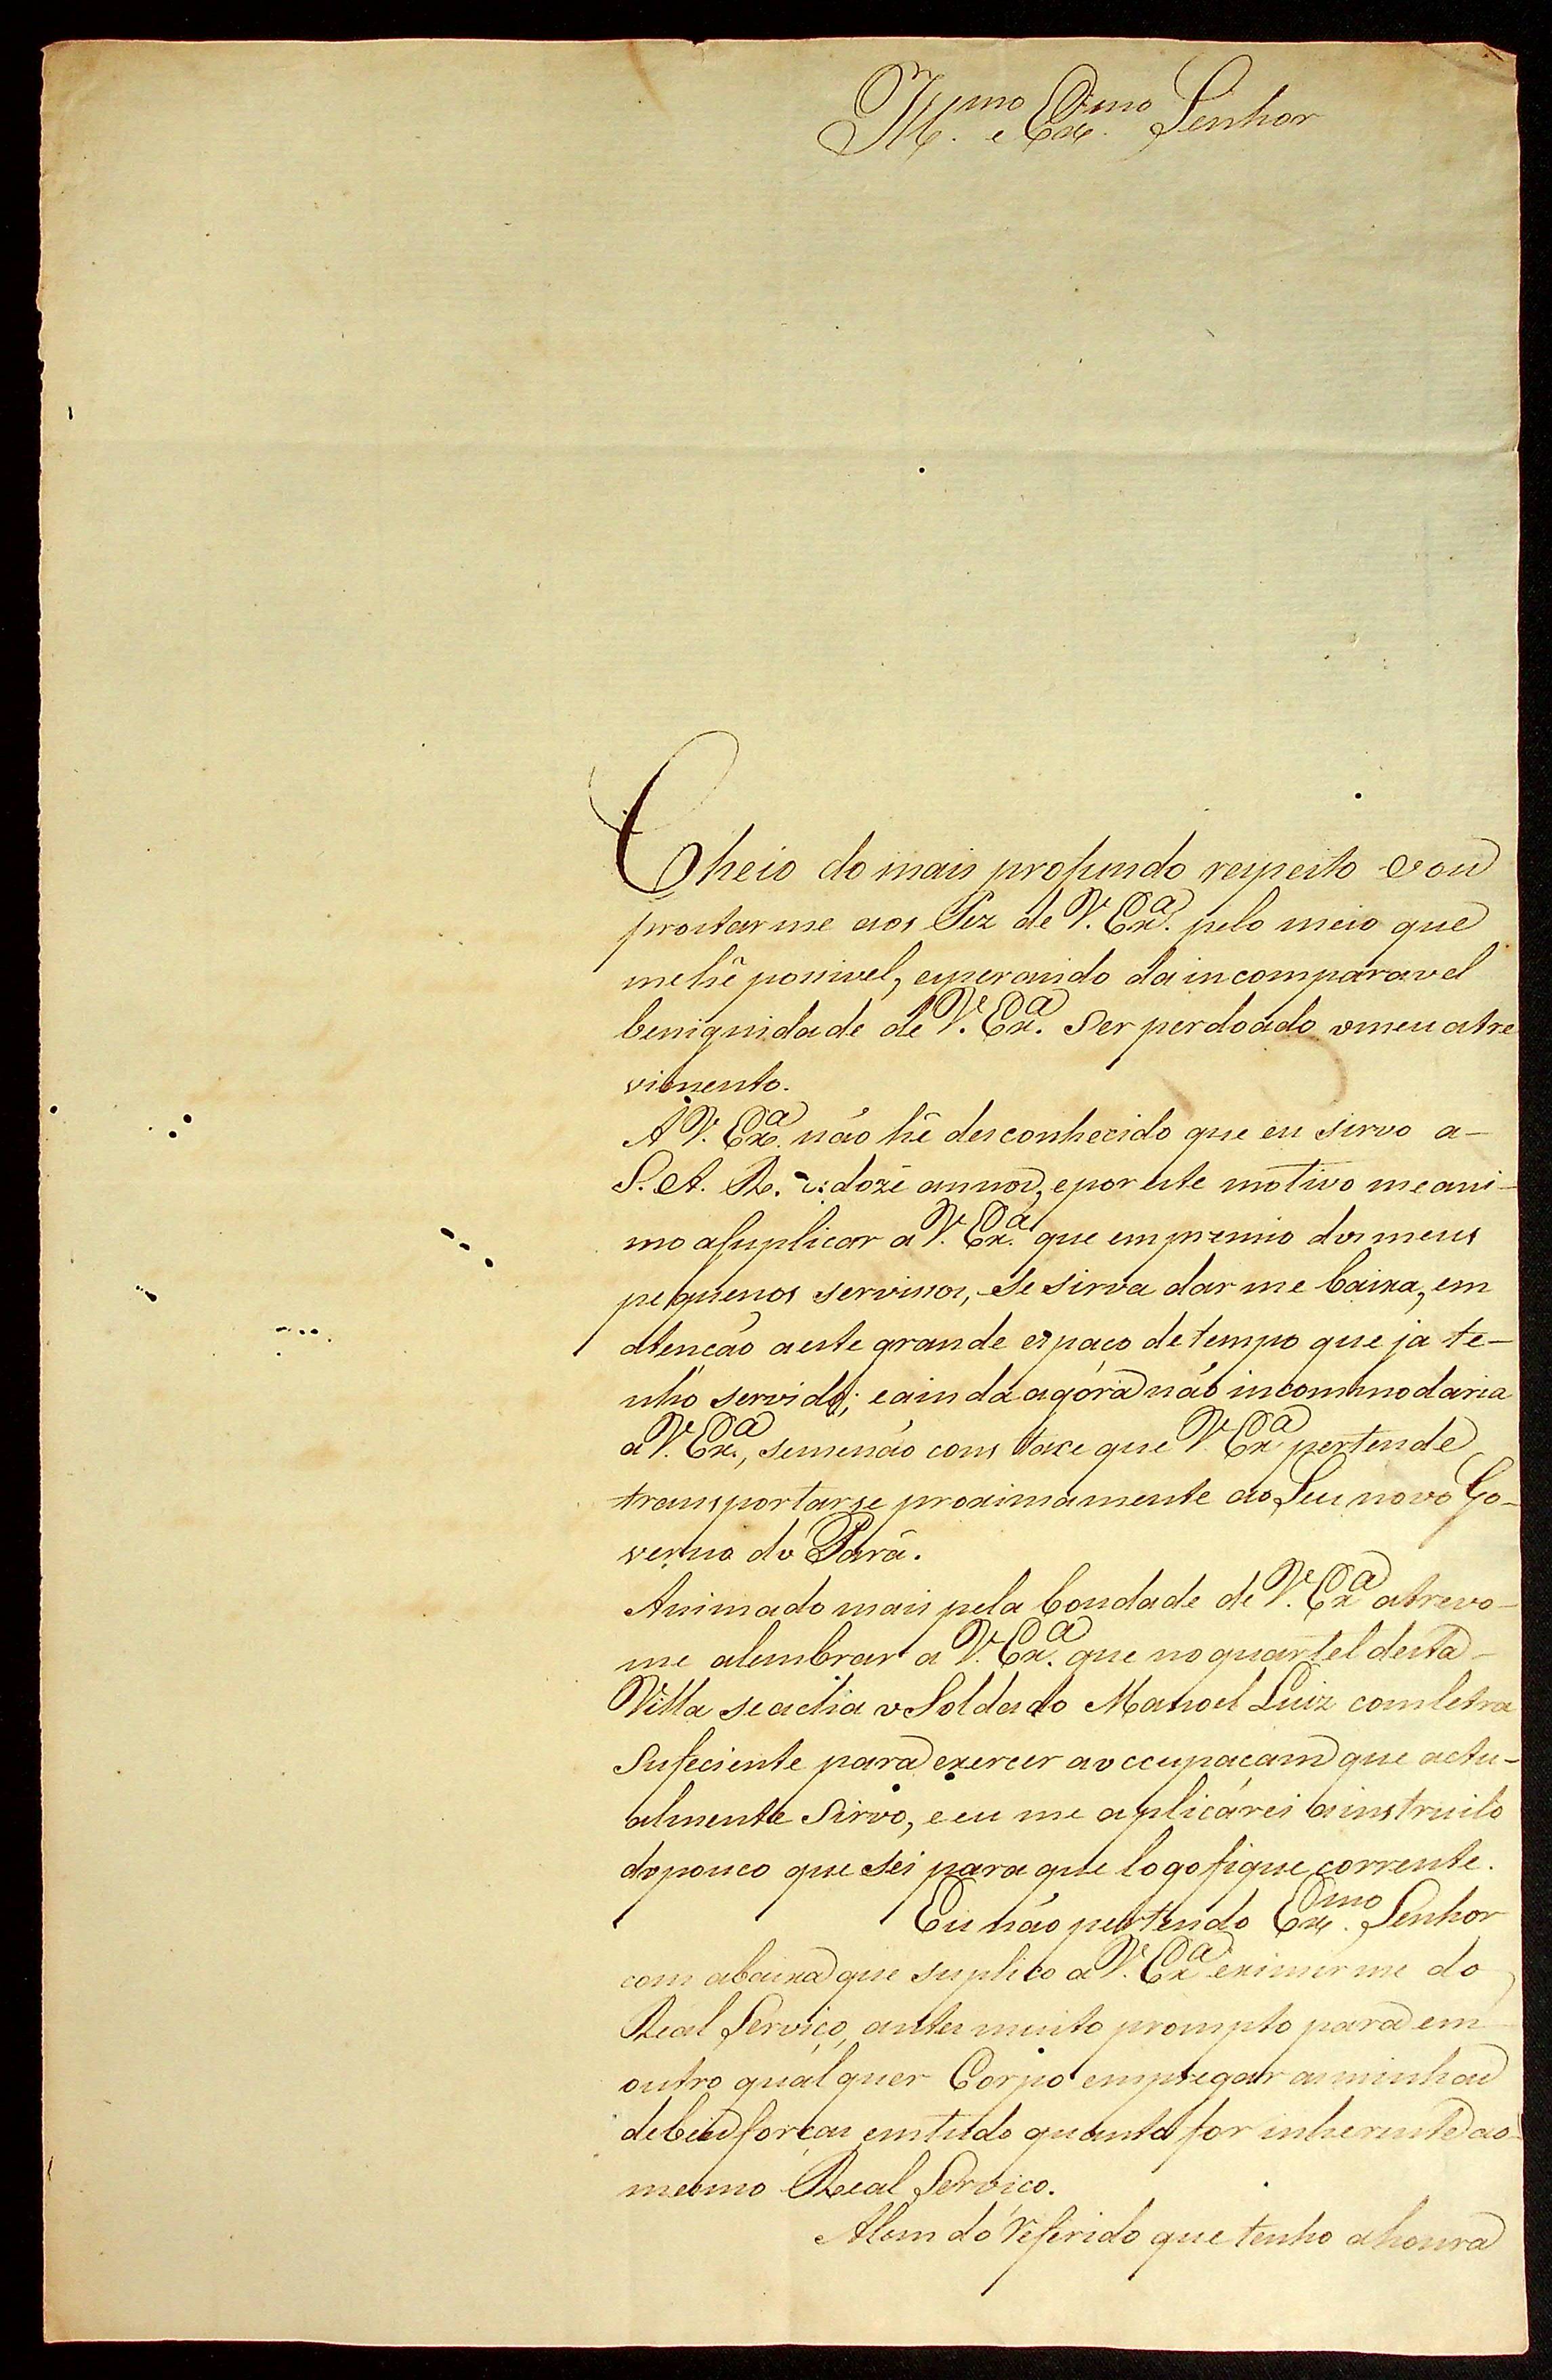 Ill.mo e Ex.mo Senhor
Cheio do mais profundo respeito vou
prostarme aos Pez de V. Ex.a pelo meio que
mehé possivel, esperando da incomparavel
benignidade de V. Ex.a ser perdoado o meu atre
vimento.
A V. Ex.a não hé desconhecido que eu sirvo a-
S. A. R. doze annos, e por este motivo me ani-
mo a suplicar a V. Ex.a que em premio dos meus
pequenos servissos, se sirva dar me baixa, em
atencão a este grande espaço de tempo que ja te-
nho servido; e ainda agóra não incommodaria
a V. Ex.a, se me não constace que V. Ex.a pertende
transportarse proximamente ao Seu novo Go-
verno do Pará.
Animado mais pela bondade de V. Ex.a atrevo-
me alembrar a V. Ex.a que no quartel desta-
Villa se acha o Soldado Manoel Luiz com letra
Sufeciente para exercer a occupacam que actu-
almente Sirvo, e eu me aplicárei a instruilo
do pouco que sei para que logo fique corrente.
Eu não pertendo Ex.mo Senhor
com a baixa que suplico a V. Ex.a eximir me do
Real Serviço, antes muito prompto para em
outro qualquer Corpo empregar as minhas
debeis forças em tudo quanto for inherente ao-
mesmo Real Servico.
Alem do referido que tenho a honra